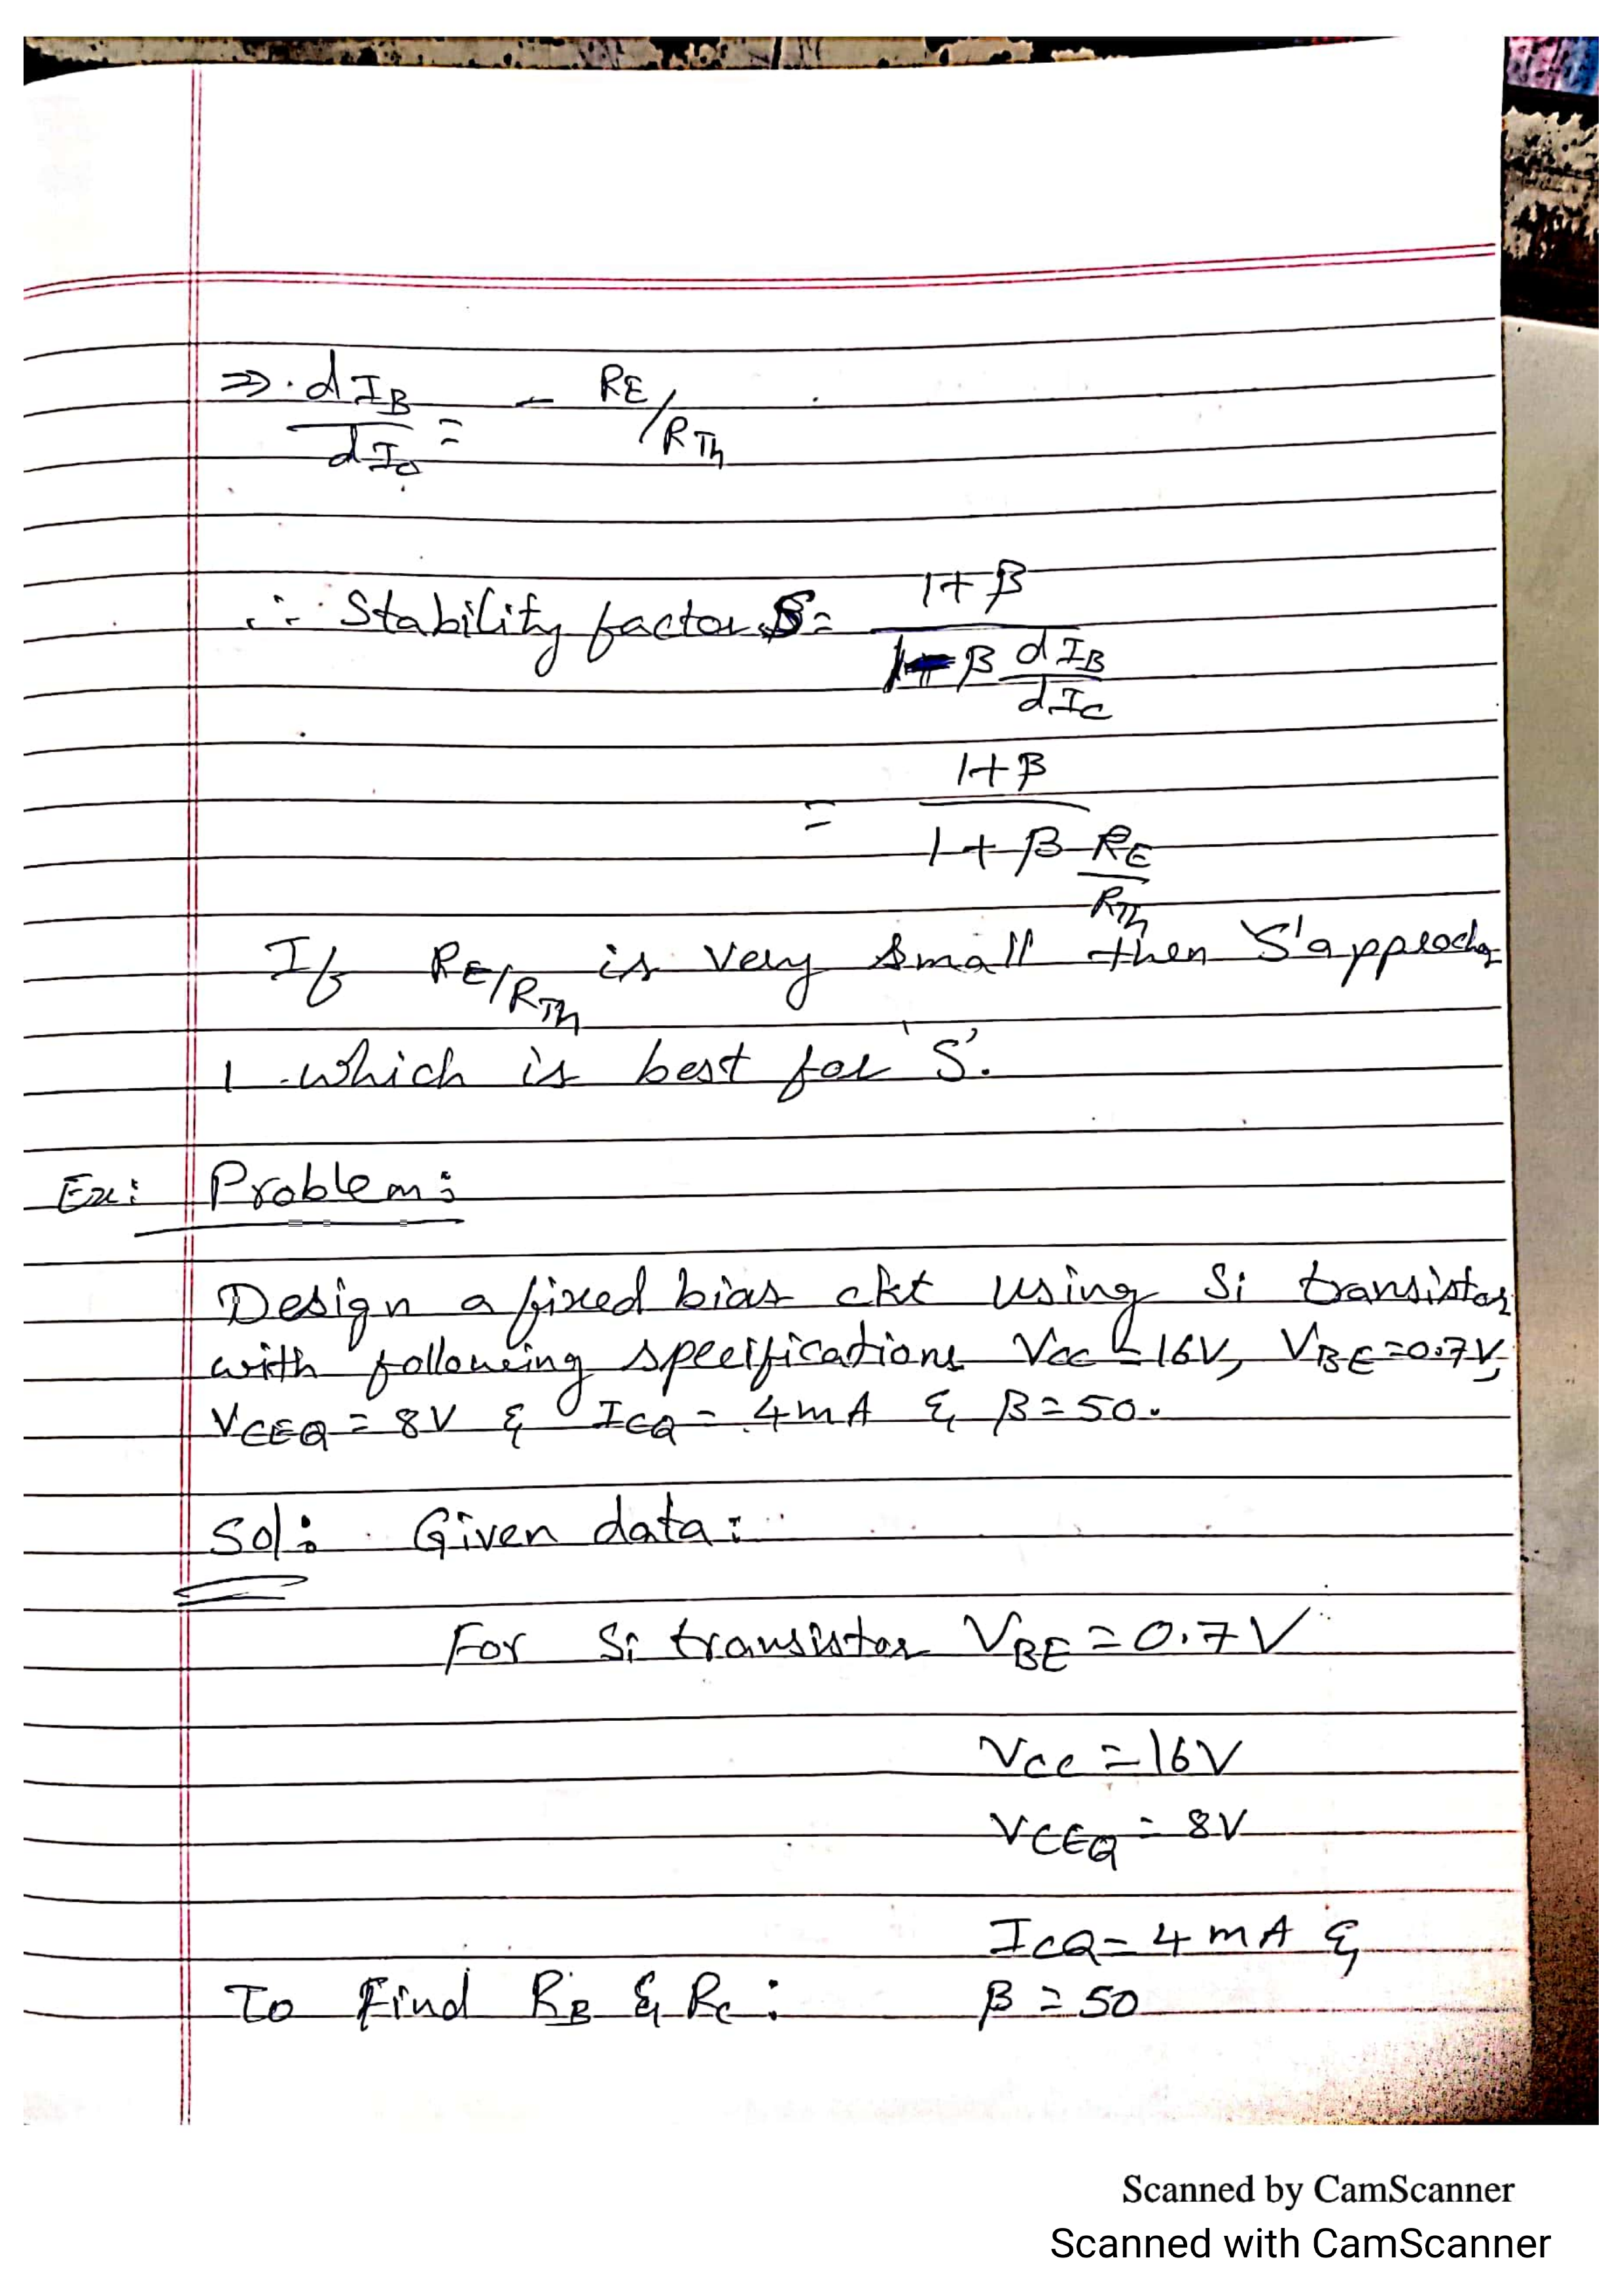 ⇒ dIB/dIC = - RE/RTh
∴ Stability factor S = (1+β)/(1-β dIB/dIC)
= (1+β)/(1+β RE/RTh)
If RE/RTh is very small then 'S' approches
1 which is best for 'S'.
Ex: Problem:
Design a fixed bias ckt using Si transistor
with following specifications VCC = 16V, VBE = 0.7V,
VCEQ = 8V & ICQ = 4mA & β = 50.
Sol: Given data:
For Si transistor VBE = 0.7V
VCC = 16V
VCEQ = 8V
ICQ = 4mA &
To Find RB & RC: β = 50
Scanned by CamScanner
Scanned with CamScanner